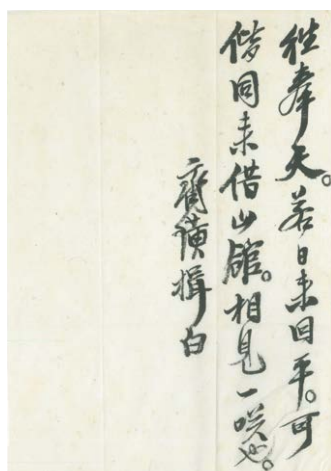 往奉天。若日未回平。可
偕同来借山館。相見一咲也。
齊璜揖白